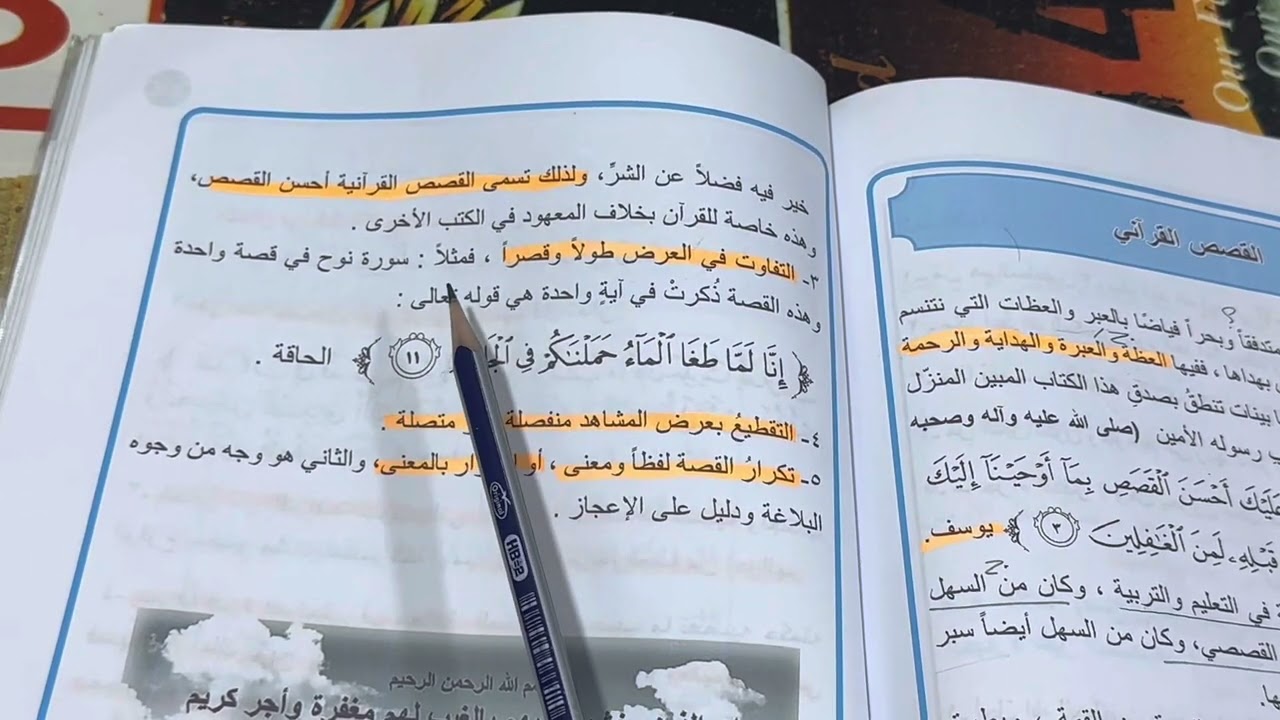 القصص القرآني
متدفقاً وبحراً فياضًا بالعبر والعظات التي نتنسم
بهداها ، ففيها العظة والعبرة والهداية والرحمة
بينات تنطقُ بصدقِ هذا الكتاب المبين المنزّل
رسوله الأمين (صلى الله عليه وآله وصحبه
عَلَيْكَ أَحْسَنَ ٱلْقَصَصِ بِمَآ أَوْحَيْنَآ إِلَيْكَ
قَبْلِهِۦ لَمِنَ ٱلْغَٰفِلِينَ ٣ يوسف.
في التعليم والتربية ، وكان من السهل
القصصي، وكان من السهل أيضاً سبر
خير فيه فضلاً عن الشرِّ، ولذلك تسمى القصص القرآنية أحسن القصص،
وهذه خاصة للقرآن بخلاف المعهود في الكتب الأخرى .
٣- التفاوت في العرض طولاً وقصراً ، فمثلاً : سورة نوح في قصة واحدة
وهذه القصة ذُكرتْ في آيةٍ واحدة هي قوله تعالى :
﴿ إِنَّا لَمَّا طَغَا ٱلْمَآءُ حَمَلْنَٰكُمْ فِي ١١ ﴾ الحاقة .
٤- التقطيعُ بعرض المشاهد منفصلة متصلة .
٥- تكرارُ القصة لفظاً ومعنى ، أو بالمعنى، والثاني هو وجه من وجوه
البلاغة ودليل على الإعجاز .
الله الرحمن الرحيم
بالغيب لهم مغفرة وأجر كريم
Our
Our
HB=2